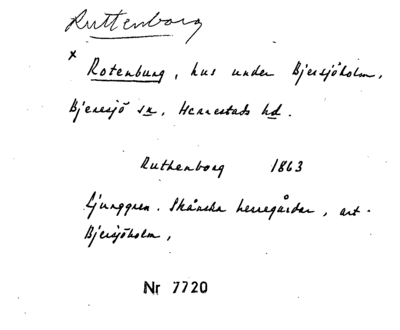 Ruttenborg
x Rotenburg, hus under Bjersjöholm,
Bjeresjö sn, Herrestads hd.
Ruthenborg 1863
Ljunggren. Skånska herregårdar, art.
Bjersjöholm,
Nr 7720